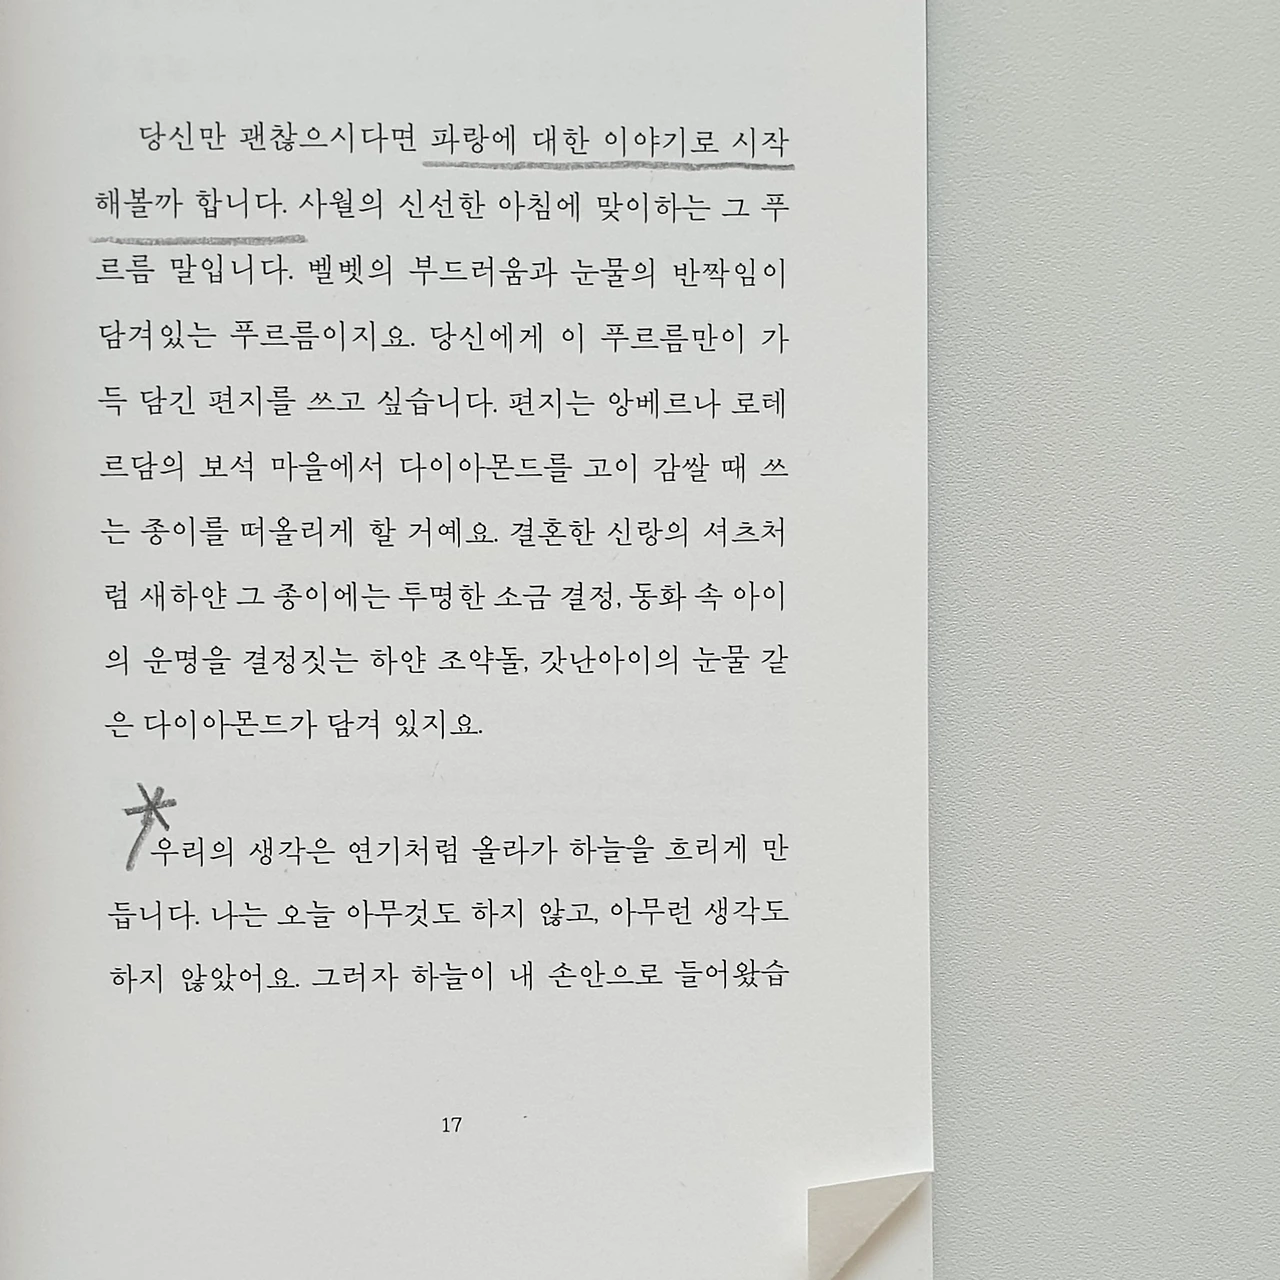 당신만 괜찮으시다면 파랑에 대한 이야기로 시작
해볼까 합니다. 사월의 신선한 아침에 맞이하는 그 푸
르름 말입니다. 벨벳의 부드러움과 눈물의 반짝임이
담겨있는 푸르름이지요. 당신에게 이 푸르름만이 가
득 담긴 편지를 쓰고 싶습니다. 편지는 앙베르나 로테
르담의 보석 마을에서 다이아몬드를 고이 감쌀 때 쓰
는 종이를 떠올리게 할 거예요. 결혼한 신랑의 셔츠처
럼 새하얀 그 종이에는 투명한 소금 결정, 동화 속 아이
의 운명을 결정짓는 하얀 조약돌, 갓난아이의 눈물 같
은 다이아몬드가 담겨 있지요.
우리의 생각은 연기처럼 올라가 하늘을 흐리게 만
듭니다. 나는 오늘 아무것도 하지 않고, 아무런 생각도
하지 않았어요. 그러자 하늘이 내 손안으로 들어왔습
17